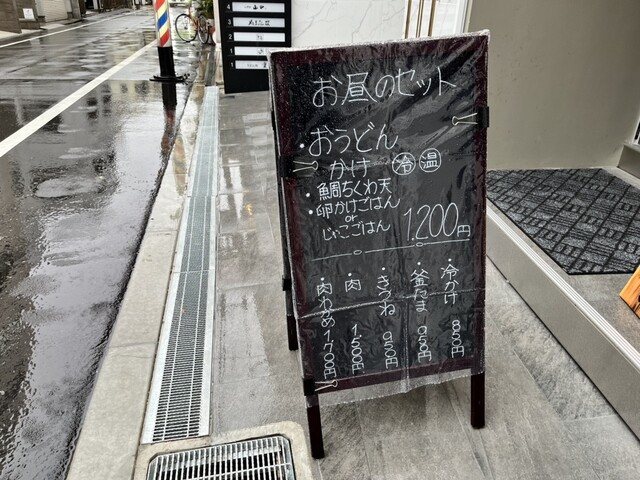 お昼のセット
・おうどん
かけ 冷 温
・鯛ちくわ天
・卵かけごはん
or
じゃこごはん 1,200円
・冷かけ 850円
・釜たま 950円
・きつね 950円
・肉 1,500円
・肉わかめ 1700円